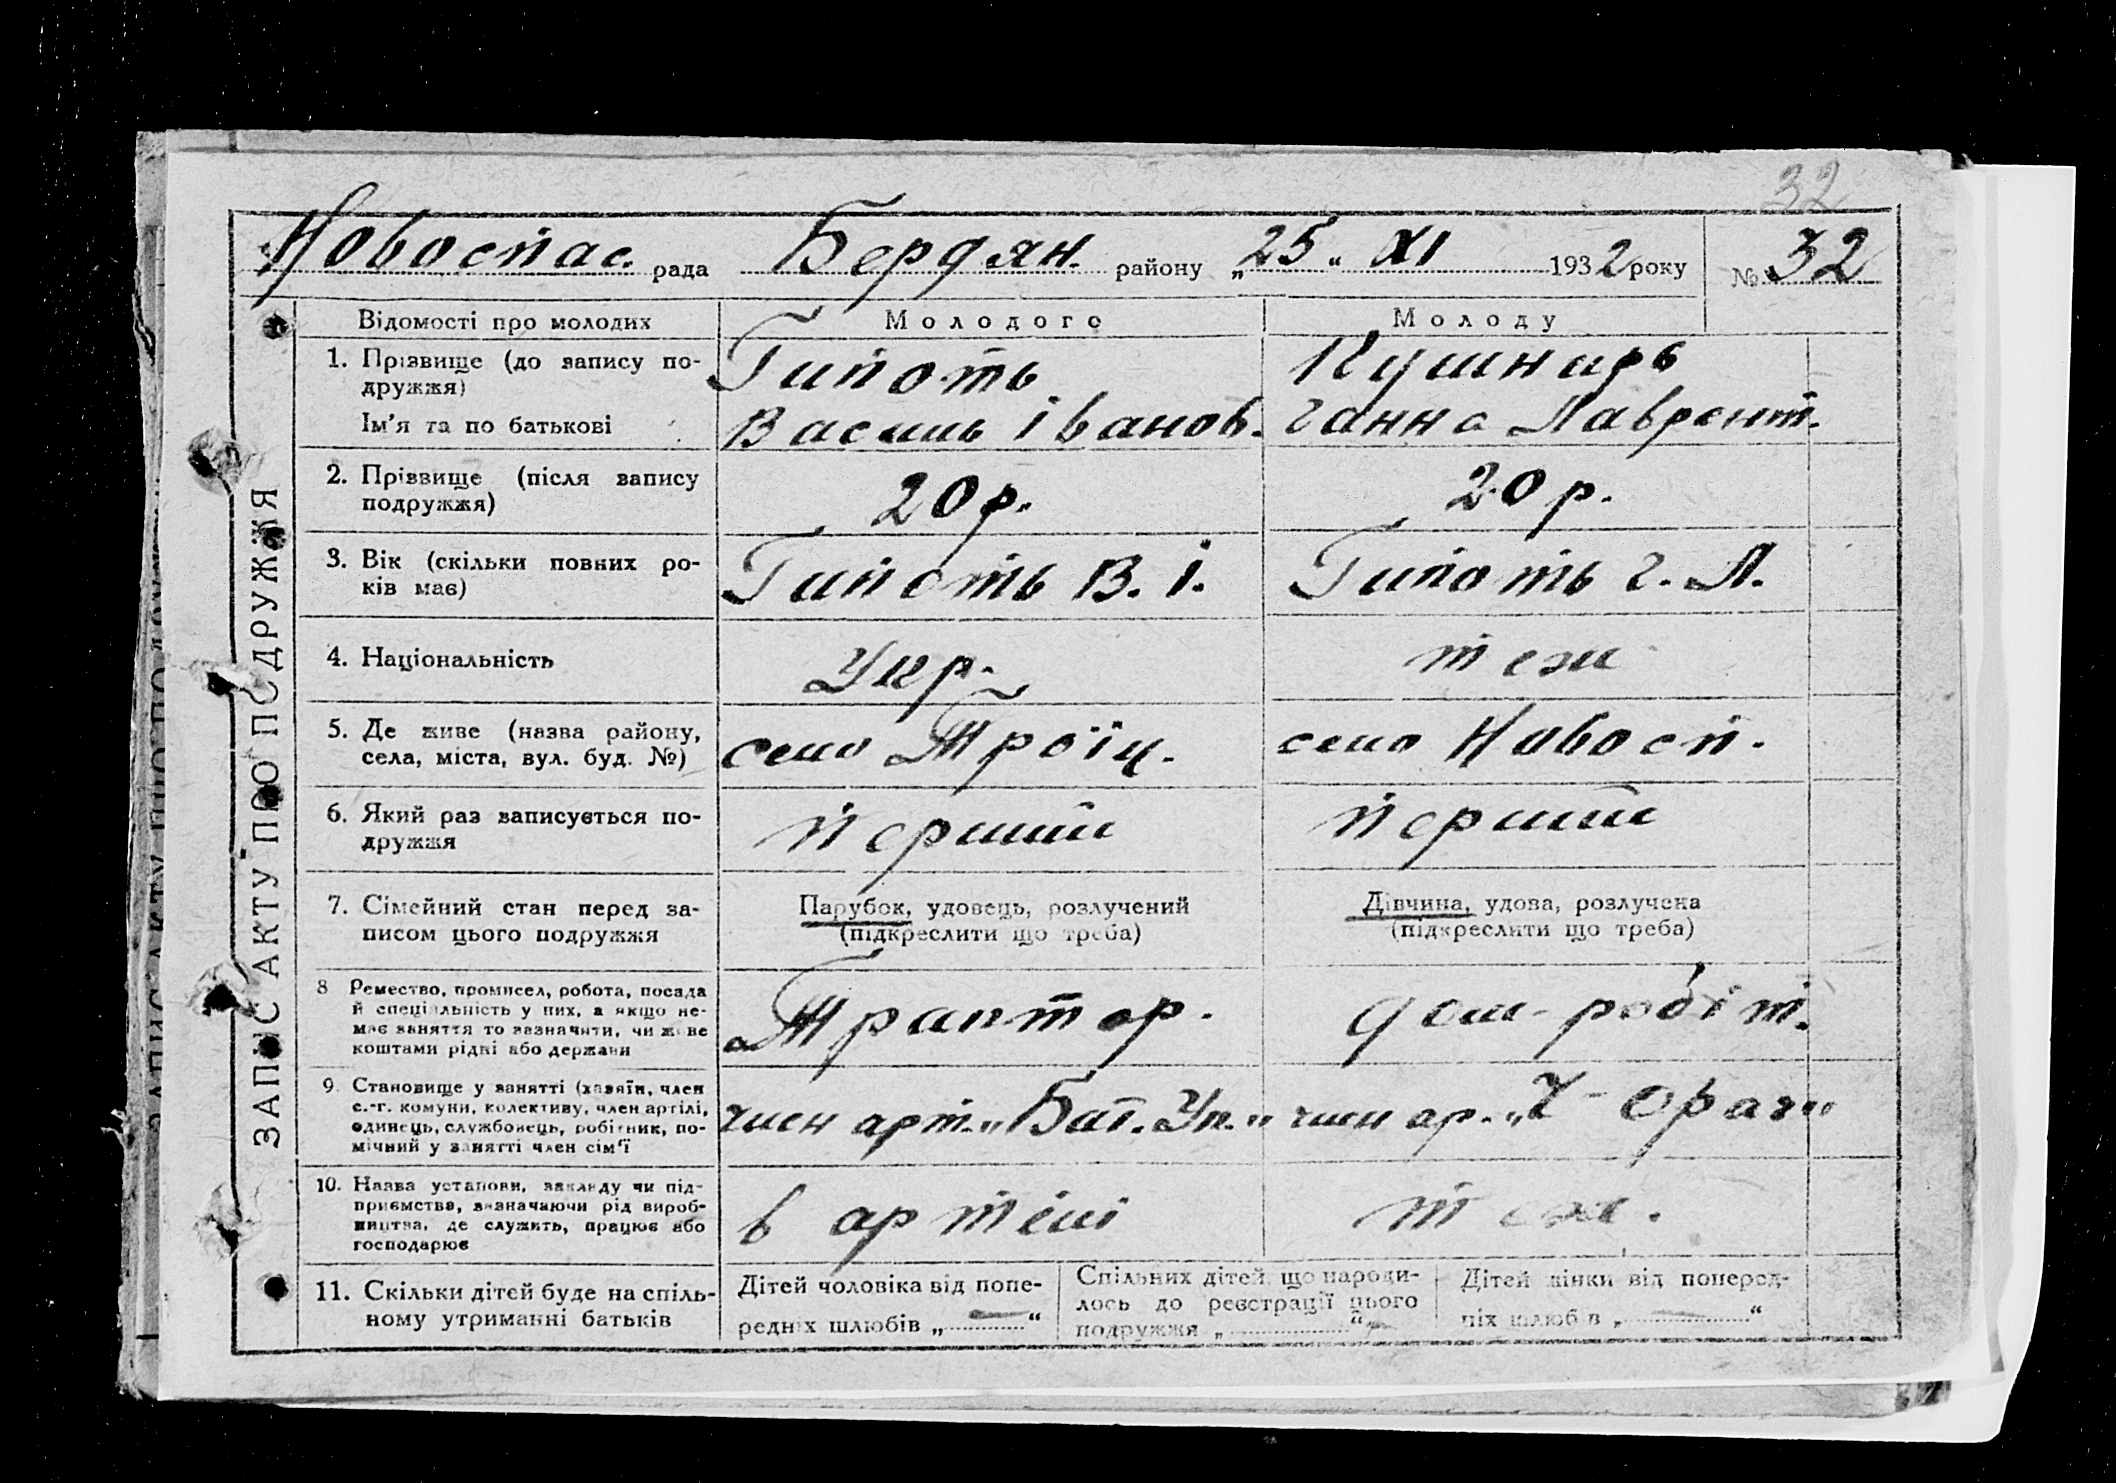 32
Новоспас. рада Бердян. району „25“ XI 1932 року № 32
ЗАПИС АКТУ ПРО ПОДРУЖЖЯ
Відомості про молодих Молодого Молоду
1. Прізвище (до запису по-
дружжя) Гипоть Кушнарь
Ім'я та по батькові Василь Іванов. Ганна Лаврент.
2. Прізвище (після запису
подружжя) 20 р. 20 р.
3. Вік (скільки повних ро-
ків має) Гипоть В. І. Гипоть Г. Л.
4. Національність Укр. теж
5. Де живе (назва району,
села, міста, вул. буд. №) село Троїц. село Новосп.
6. Який раз записується по-
дружжя перший перший
7. Сімейний стан перед за-
писом цього подружжя
Парубок, удовець, розлучений
(підкреслити що треба)
Дівчина, удова, розлучена
(підкреслити що треба)
8 Ремество, промисел, робота, посада
й спеціальність у них, а якщо не-
має заняття то зазначити, чи живе
коштами рідні або держави
Трактор. дом-робіт.
9. Становище у занятті (хазяїн, член
с.-г. комуни, колективу, член артілі,
одинець, службовець, робітник, по-
мічний у занятті член сім'ї
член арт. „Бат. Ук.“ член ар. „Ч-орач“
10. Назва установи, закладу чи під-
приємства, зазначаючи рід вироб-
ництва, де служить, працює або
господарює
в артілі теж.
11. Скільки дітей буде на спіль-
ному утриманні батьків
Дітей чоловіка від попе-
редніх шлюбів „ — “
Спільних дітей, що народи-
лось до реєстрації цього
подружжя „ “
Дітей жінки від поперед-
ніх шлюбів „ — “